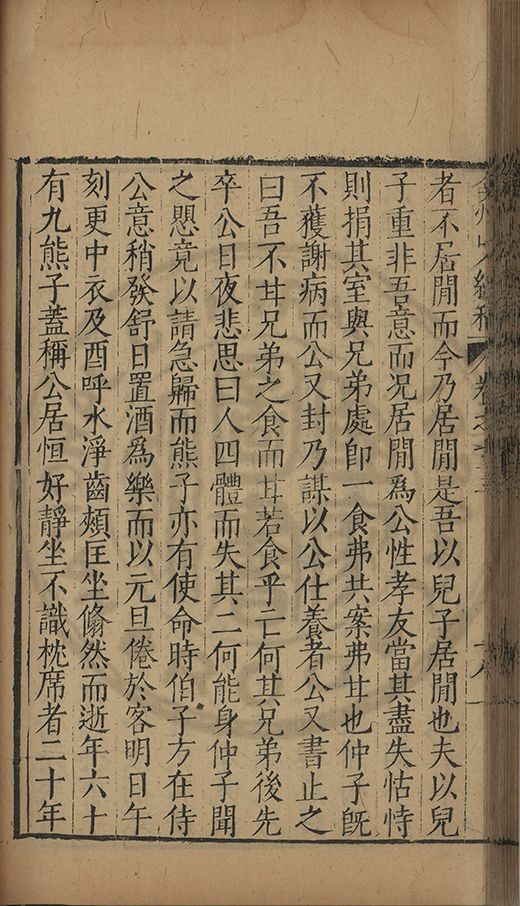 者不居閒而今乃居閒是吾以兒子居閒也夫以兒
子重非吾意而况居閒為公性孝友當其盡失怙恃
則捐其室與兄弟處卽一食弗共案弗甘也仲子旣
不獲謝病而公又封乃謀以公仕養者公又書止之
曰吾不甘兄弟之食而甘若食乎亡何其兄弟後先
卒公日夜悲思曰人四體而失其二何能身仲子聞
之思竟以請急歸而熊子亦有使命時伯子方在侍
公意稍發舒日置酒為樂而以元旦倦於客明日午
刻更中衣及酉呼水淨齒頰匡坐翛然而逝年六十
有九熊子蓋稱公居恒好靜坐不識枕席者二十年